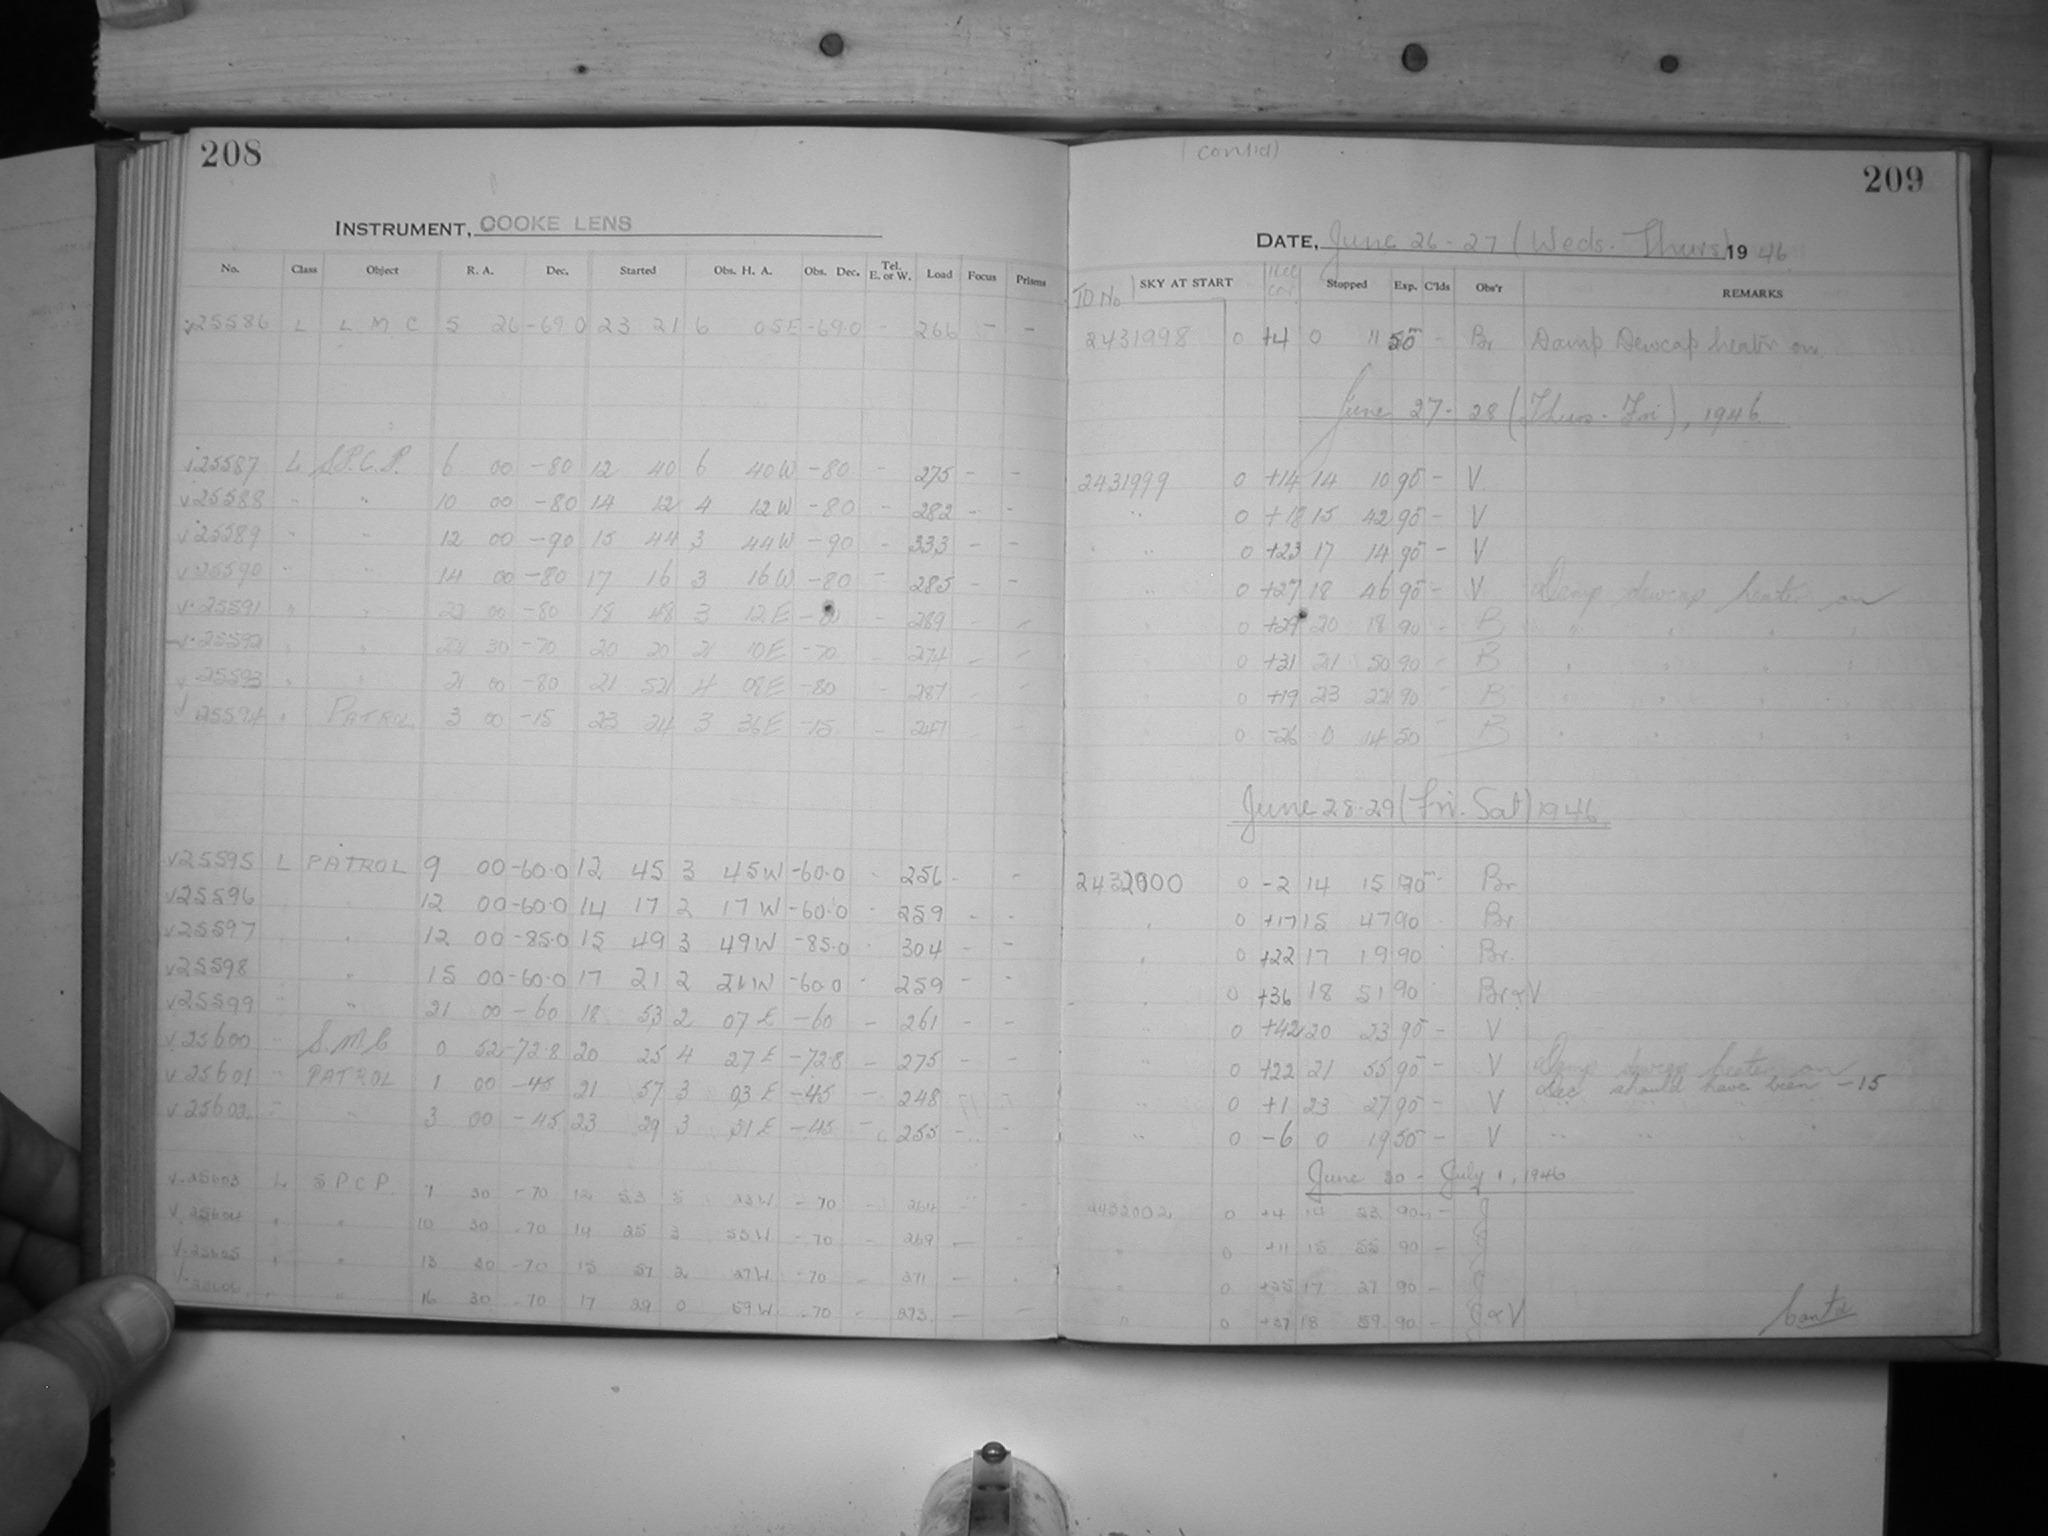 208
INSTRUMENT, COOKE LENS
No. Class Object R. A. Dec. Started Obs. H. A. Obs. Dec. Tel. E. or W. Load Focus Prisms
25586 L L M C 5 26 -69.0 23 21 6 05E -69.0 - 266 - -
25587 L S.P.C.P. 6 00 -80 12 40 6 40W -80 - 275 - -
v25588 " " 10 00 -80 14 12 4 12W -80 - 282 - -
25589 " " 12 00 -90 15 44 3 44W -90 - 333 - -
v25590 " " 14 00 -80 17 16 3 16W -80 - 285 - -
v25591 " " 22 00 -80 18 48 3 12E - 289 - -
v25592 " " 30 -70 20 20 10E -70 - 274 - -
v25593 " " 21 00 -80 21 52 4 08E -80 - 287 - -
25594 " PATROL 3 00 -15 23 24 3 36E -15 - 247
v25595 L PATROL 9 00 -60.0 12 45 3 45W -60.0 - 256 - -
v25596 " " 12 00 -60.0 14 17 2 17W -60.0 - 259 - -
v25597 " " 12 00 -85.0 15 49 3 49W -85.0 - 304 - -
v25598 " " 15 00 -60.0 17 21 2 21W -60.0 - 259 - -
v25599 " " 21 00 -60 18 53 2 07E -60 - 261 - -
v25600 " S.M.C 0 52 -72.8 20 25 4 27E -72.8 - 275 - -
v25601 " PATROL 1 00 -45 21 57 3 03E -45 - 248
v25602 " " 3 00 -45 23 29 3 31E -45 - 255 - -
v25603 L S P C P. 7 30 -70 12 53 5 23W -70 - 264 - -
v25604 " " 10 30 -70 14 25 3 55W -70 - 269 - -
v25605 " " 13 30 -70 15 57 2 27W -70 - 271 - -
25606 " " 16 30 -70 17 29 0 59W -70 - 273 - -
(contd)
209
DATE, June 26-27 (Weds. Thurs) 1946
JD No SKY AT START Stopped Exp. C'lds Obs'r REMARKS
2431998 0 +4 0 11 50m - Br Damp Dewcap heater on
June 27-28 (Thurs-Fri), 1946
2431999 0 +14 14 10 90 - V
" 0 +18 15 42 90 - V
" 0 +23 17 14 90 - V
" 0 +27 18 46 90 - V Damp dewcap heater on
" 0 +29 20 18 90 - B " " " "
" 0 +31 21 50 90 - B " " " "
" 0 +19 23 22 90 - B " " " "
0 -26 0 14 50 - B " " " "
June 28-29 (Fri. Sat) 1946
2432000 0 -2 14 15 90m - Br
" 0 +17 15 47 90 Br
" 0 +22 17 19 90 Br.
" 0 +36 18 51 90 Br & V
" 0 +42 20 23 90 - V
" 0 +22 21 55 90 - V Damp dewcap heater on
" 0 +1 23 27 90 - V dec should have been -15
" 0 -6 0 19 50 - V " " " "
June 30 - July 1, 1946
2432002 0 +4 14 23 90m - J
" 0 +11 15 55 90 - J
" 0 +25 17 27 90 - J
" 0 +37 18 59 90 - J & V
Contd